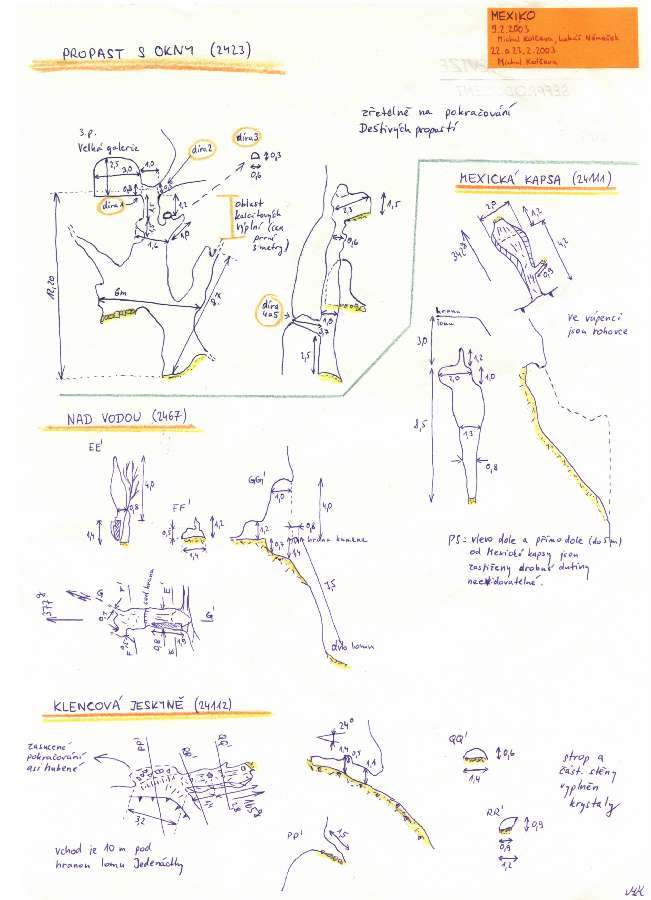 MEXIKO
9.2.2003
Michal Kolčava, Lukáš Němeček
22. a 23.2.2003
Michal Kolčava
PROPAST S OKNY (2423)
zřetelně na pokračování
Deštivých propastí
3.p.
Velká galerie
díra 2
díra 3
2,5
3,0
1,0
0,3
0,6
díra 1
1,2
oblast
kalcitových
výplní (jen
první
3 metry)
12,20
6m
2,3
1,5
0,6
díra
4 a 5
1,0
2,5
MEXICKÁ KAPSA (24111)
2,0
1,2
4,2
0,9
ve vápenci
jsou rohovce
hrana
lomu
3,0
1,2
2,0
1,0
8,5
1,3
0,8
PS = vlevo dole a přímo dole (do 5m)
od Mexické kapsy jsou
zastiženy drobné dutiny
neevidovatelné.
NAD VODOU (2467)
EE'
4,0
0,8
1,4
FF'
1,2
1,4
GG'
1,0
4,0
1,2
0,8
0,7
1,4
hrana kamene
7,5
dno lomu
G'
KLENCOVÁ JESKYNĚ (24112)
zasucené
pokračování
asi hubené
PP'
QQ'
3,2
vchod je 10 m pod
hranou lomu Jedenáctky
24°
1,4
0,5
1,1
PP'
1,5
QQ'
0,6
1,4
RR'
0,9
0,9
1,2
strop a
část. stěny
vyplněn
krystaly